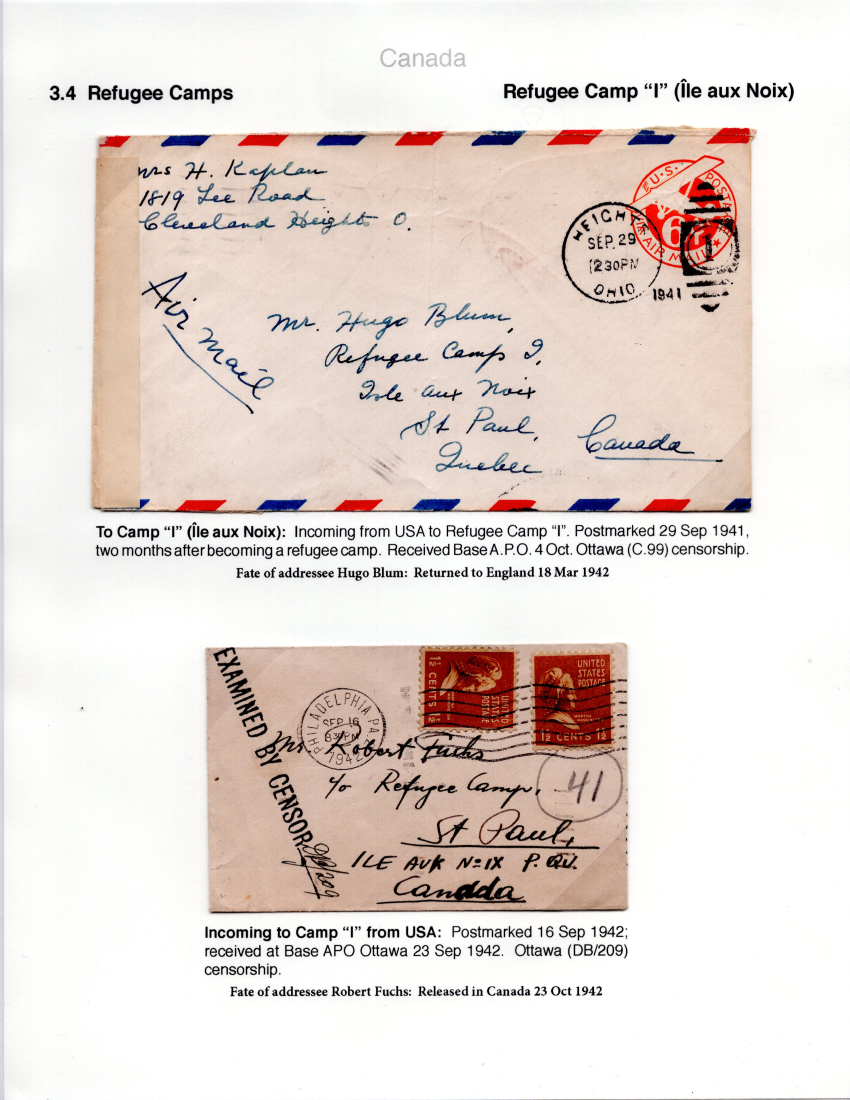 Canada
3.4 Refugee Camps
Refugee Camp “I” (Île aux Noix)
Mrs H. Kaplan
1819 Lee Road
Cleveland Heights O.
U.S. POSTAGE
6¢
AIR MAIL
HEIGHTS
SEP. 29
1230PM
OHIO
1941
1
Air Mail
Mr. Hugo Blum,
Refugee Camp I,
Isle aux Noix
St Paul,
Quebec
Canada
To Camp “I” (Île aux Noix): Incoming from USA to Refugee Camp “I”. Postmarked 29 Sep 1941,
two months after becoming a refugee camp. Received Base A.P.O. 4 Oct. Ottawa (C.99) censorship.
Fate of addressee Hugo Blum: Returned to England 18 Mar 1942
EXAMINED BY CENSOR
DB/209
PHILADELPHIA PA
SEP 16
830PM
1942
1½ CENTS 1½
UNITED
STATES
POSTAGE
UNITED
STATES
POSTAGE
MARTHA
1½ CENTS 1½
Mr Robert Fuchs
c/o Refugee Camp,
41
St Paul,
ILE AUX NOIX P. QU.
Canada
Incoming to Camp “I” from USA: Postmarked 16 Sep 1942;
received at Base APO Ottawa 23 Sep 1942. Ottawa (DB/209)
censorship.
Fate of addressee Robert Fuchs: Released in Canada 23 Oct 1942